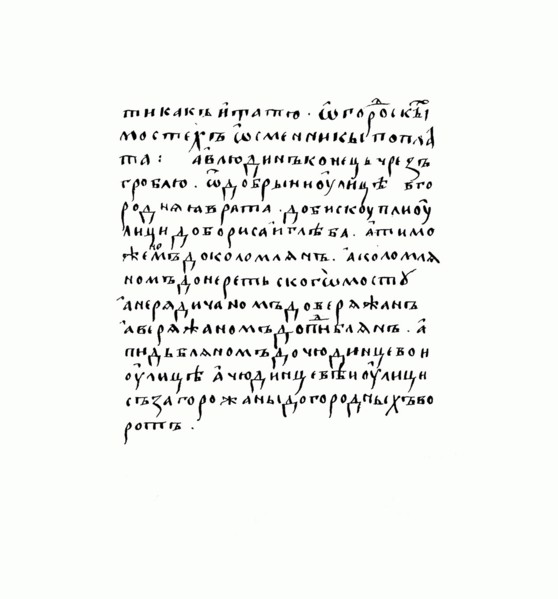 тикакъ и татю . ѿ городскы
мостехъ ѿсменникы попла
та : а влюдинъ конець чрезъ
гроблю . ѿ добрыни оулицѣ в го
родняя врата . до бискоупли оу
лици до бориса и глѣба . а тимо
женомъ до коломлянъ . а коломля
номъ до неретьского мосту
а нерядичаномъ до верѧжанъ
а верѧжаномъ до пидблянъ . а
пидьбляномъ до чюдинцевои
оулицѣ а чюдинцевѣи оулици
съ загорожаны до городныхъ во
ротъ .